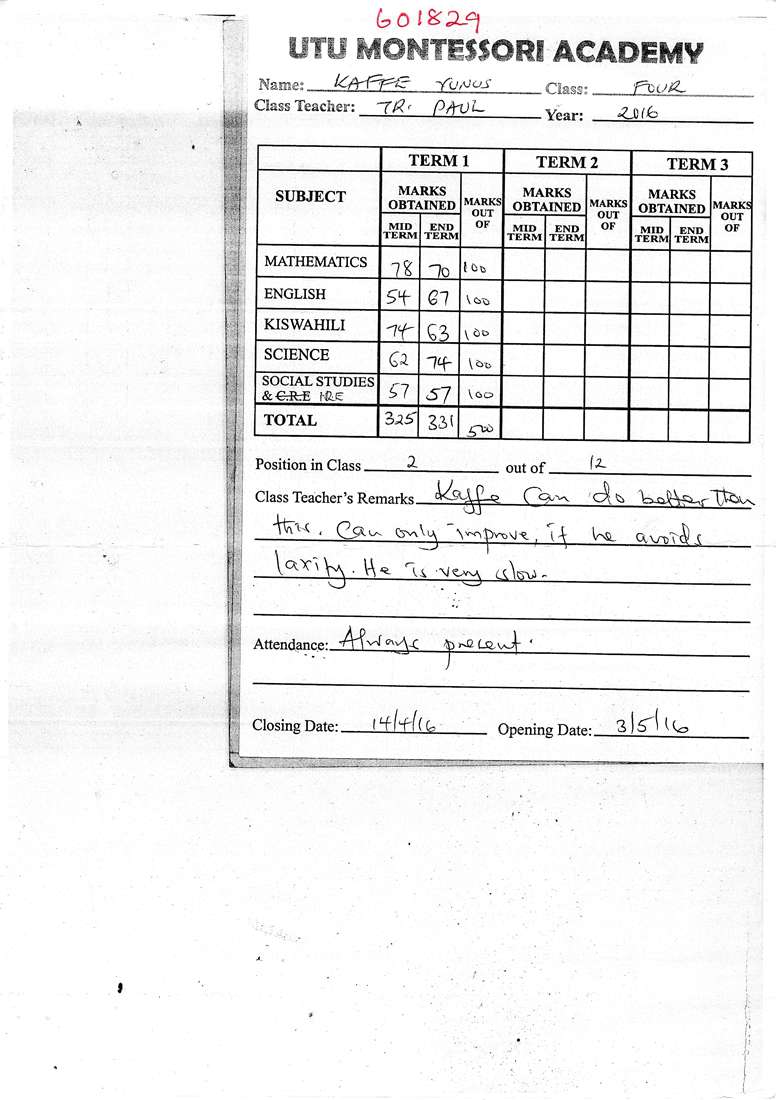 601829
UTU MONTESSORI ACADEMY
Name: KAFFE YUNUS Class: FOUR
Class Teacher: TR. PAUL Year: 2016
TERM 1 TERM 2 TERM 3
SUBJECT MARKS OBTAINED MARKS OUT OF MARKS OBTAINED MARKS OUT OF MARKS OBTAINED MARKS OUT OF
MID TERM END TERM MID TERM END TERM MID TERM END TERM
MATHEMATICS 78 70 100
ENGLISH 54 67 100
KISWAHILI 74 63 100
SCIENCE 62 74 100
SOCIAL STUDIES
& C.R.E IRE 57 57 100
TOTAL 325 331 500
Position in Class 2 out of 12
Class Teacher's Remarks Kaffe Can do better than
this. Can only improve, if he avoids
laxity. He is very slow.
Attendance: Always present.
Closing Date: 14/4/16 Opening Date: 3/5/16